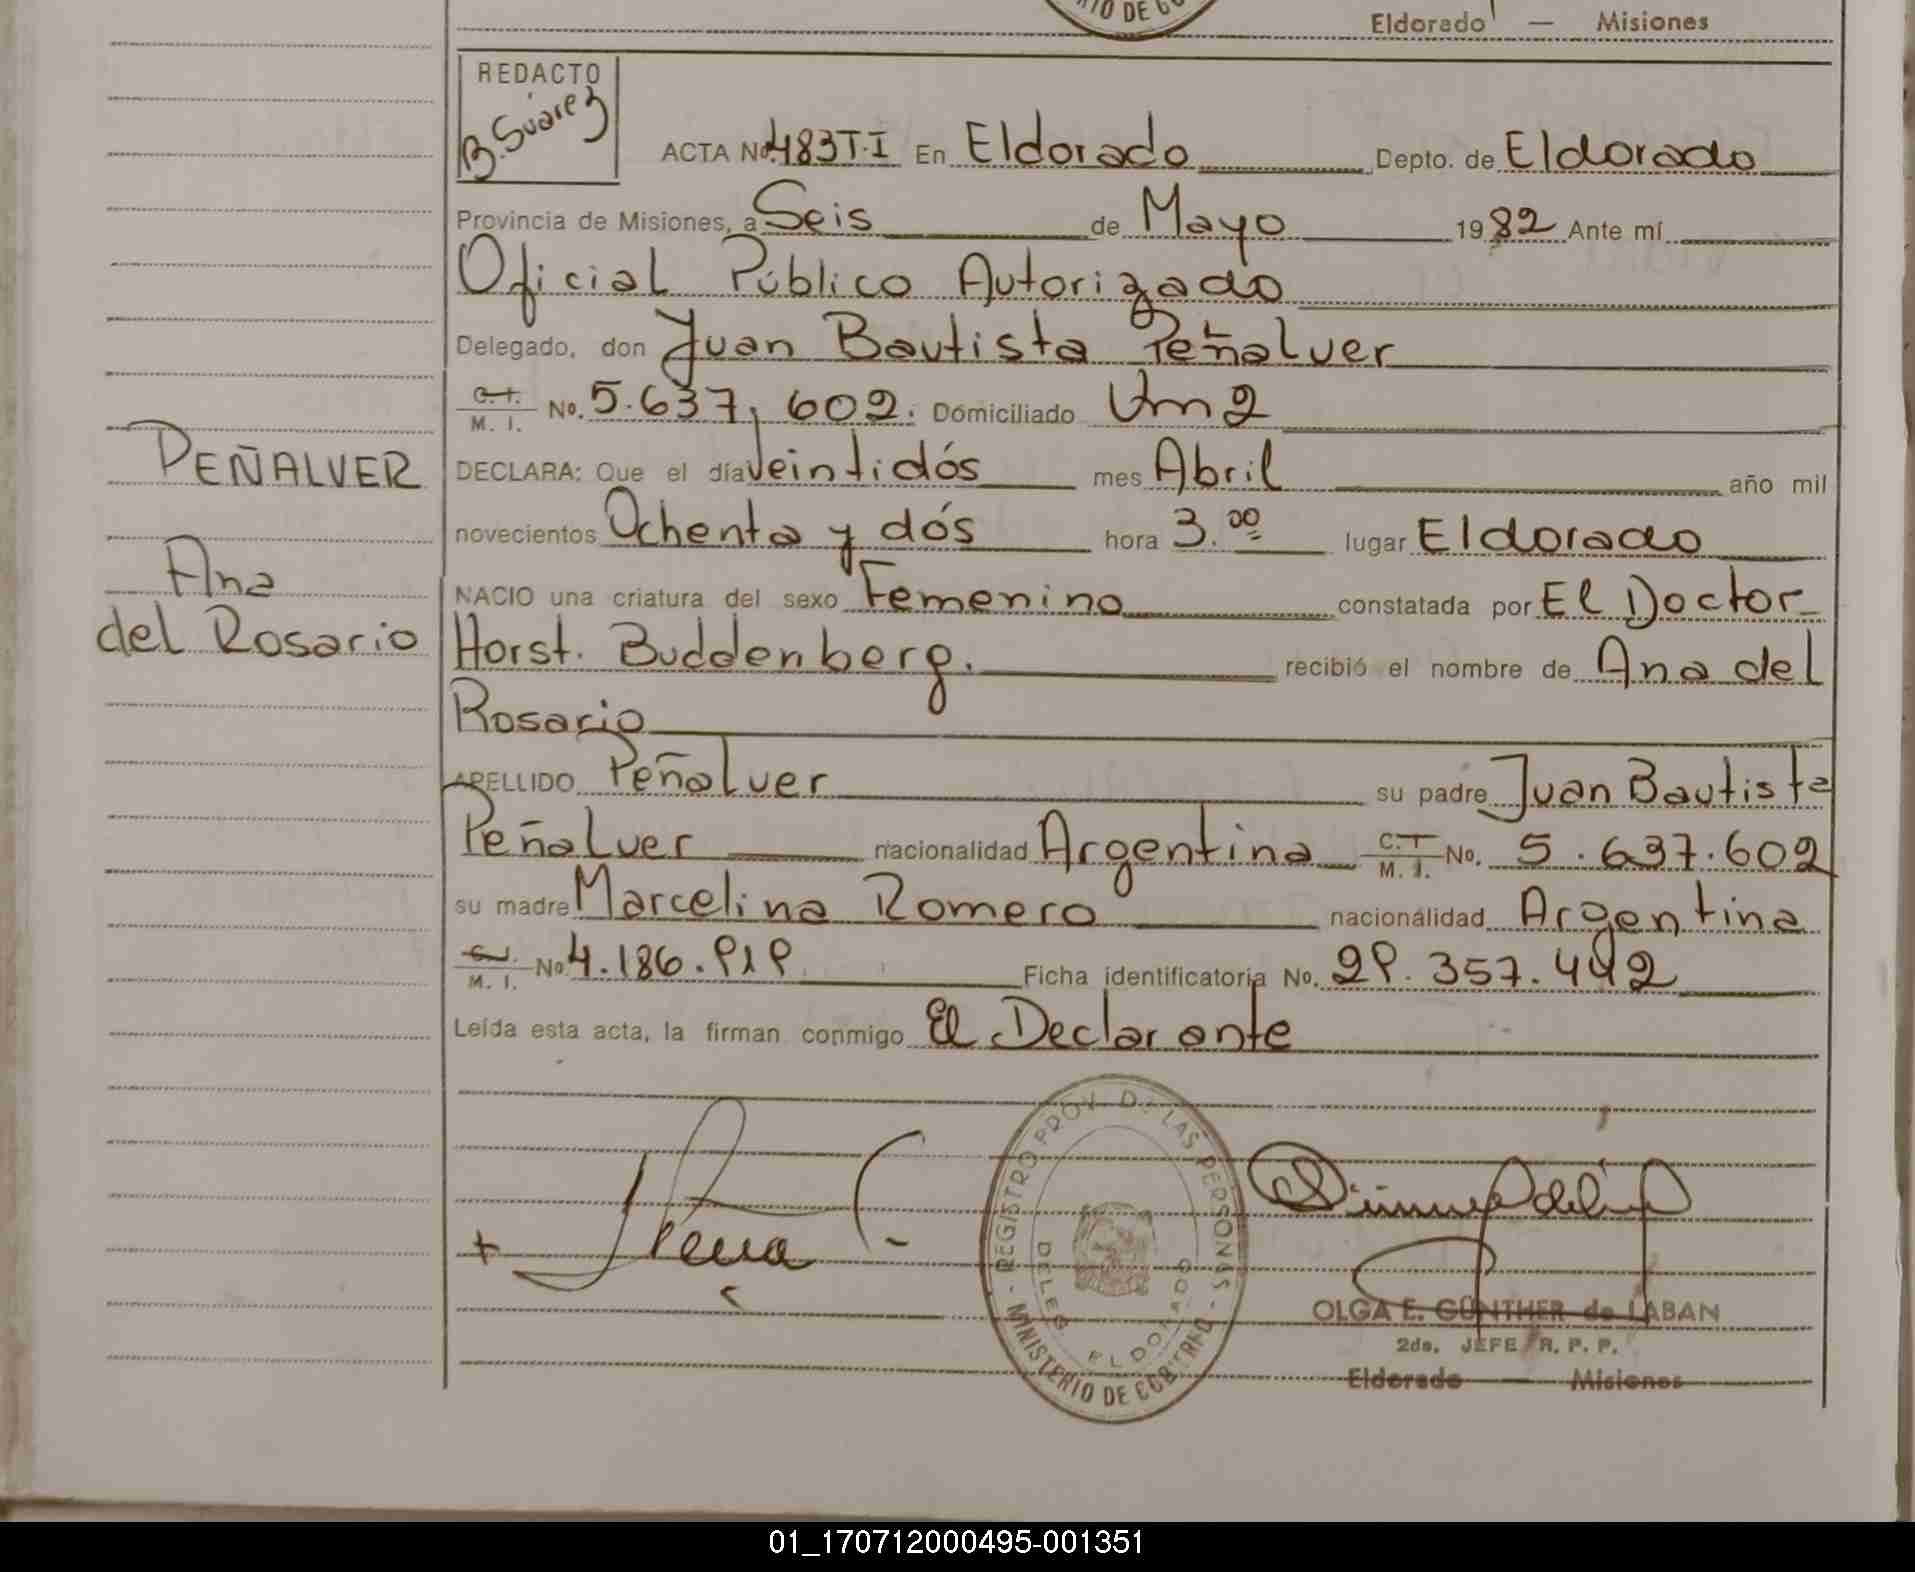 RIO DE GO
Eldorado — Misiones
REDACTO
B. Suárez
ACTA No. 483 T·I En Eldorado Depto. de Eldorado
Provincia de Misiones, a Seis de Mayo 1982 Ante mí
Oficial Público Autorizado
Delegado, don Juan Bautista Peñalver
C.I. M. I. No. 5.637.602. Domiciliado Km 2
PEÑALVER
DECLARA: Que el día Veintidós mes Abril año mil
novecientos Ochenta y dós hora 3.00 lugar Eldorado
Ana
NACIO una criatura del sexo Femenino constatada por El Doctor
del Rosario
Horst. Buddenberg. recibió el nombre de Ana del
Rosario
APELLIDO Peñalver su padre Juan Bautista
Peñalver nacionalidad Argentina C.I M. I. No. 5.637.602
su madre Marcelina Romero nacionalidad Argentina
M. I. No 4.186.919 Ficha identificatoria No. 29.357.442
Leída esta acta, la firman conmigo El Declarante
REGISTRO PROV. DE LAS PERSONAS
DELEG. ELDORADO
MINISTERIO DE GOBIERNO
OLGA E. GÜNTHER de LABAN
2da. JEFE R. P. P.
Eldorado — Misiones
01_170712000495-001351